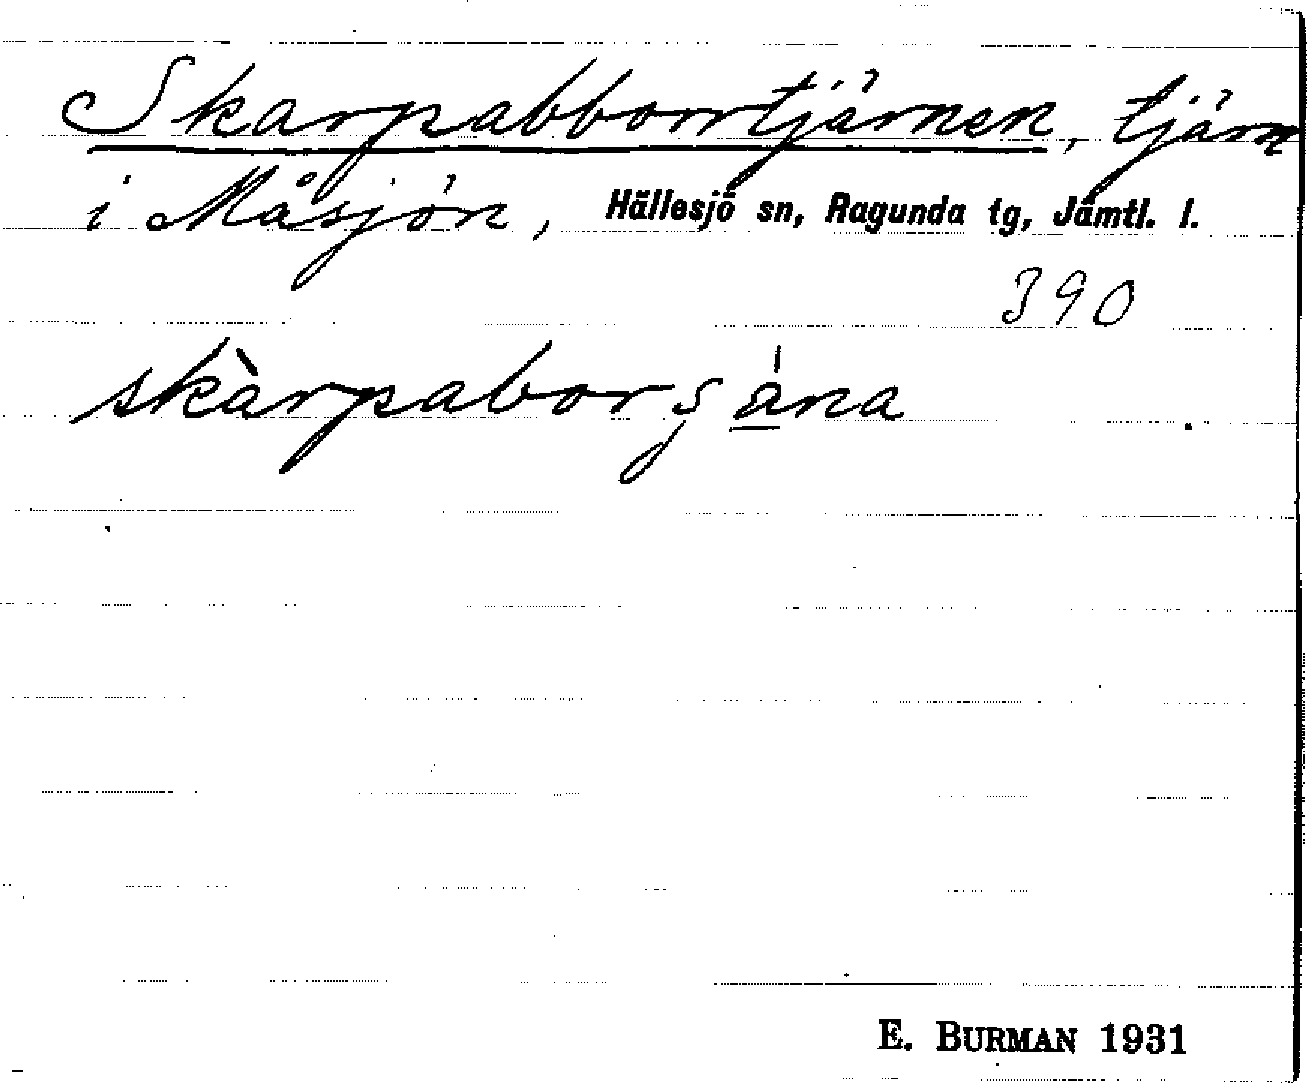 Skarpabborrtjärnen, tjärn
i Måsjön, Hällesjö sn, Ragunda tg, Jämtl. l.
390
skàrpaborʂána
E. BURMAN 1931